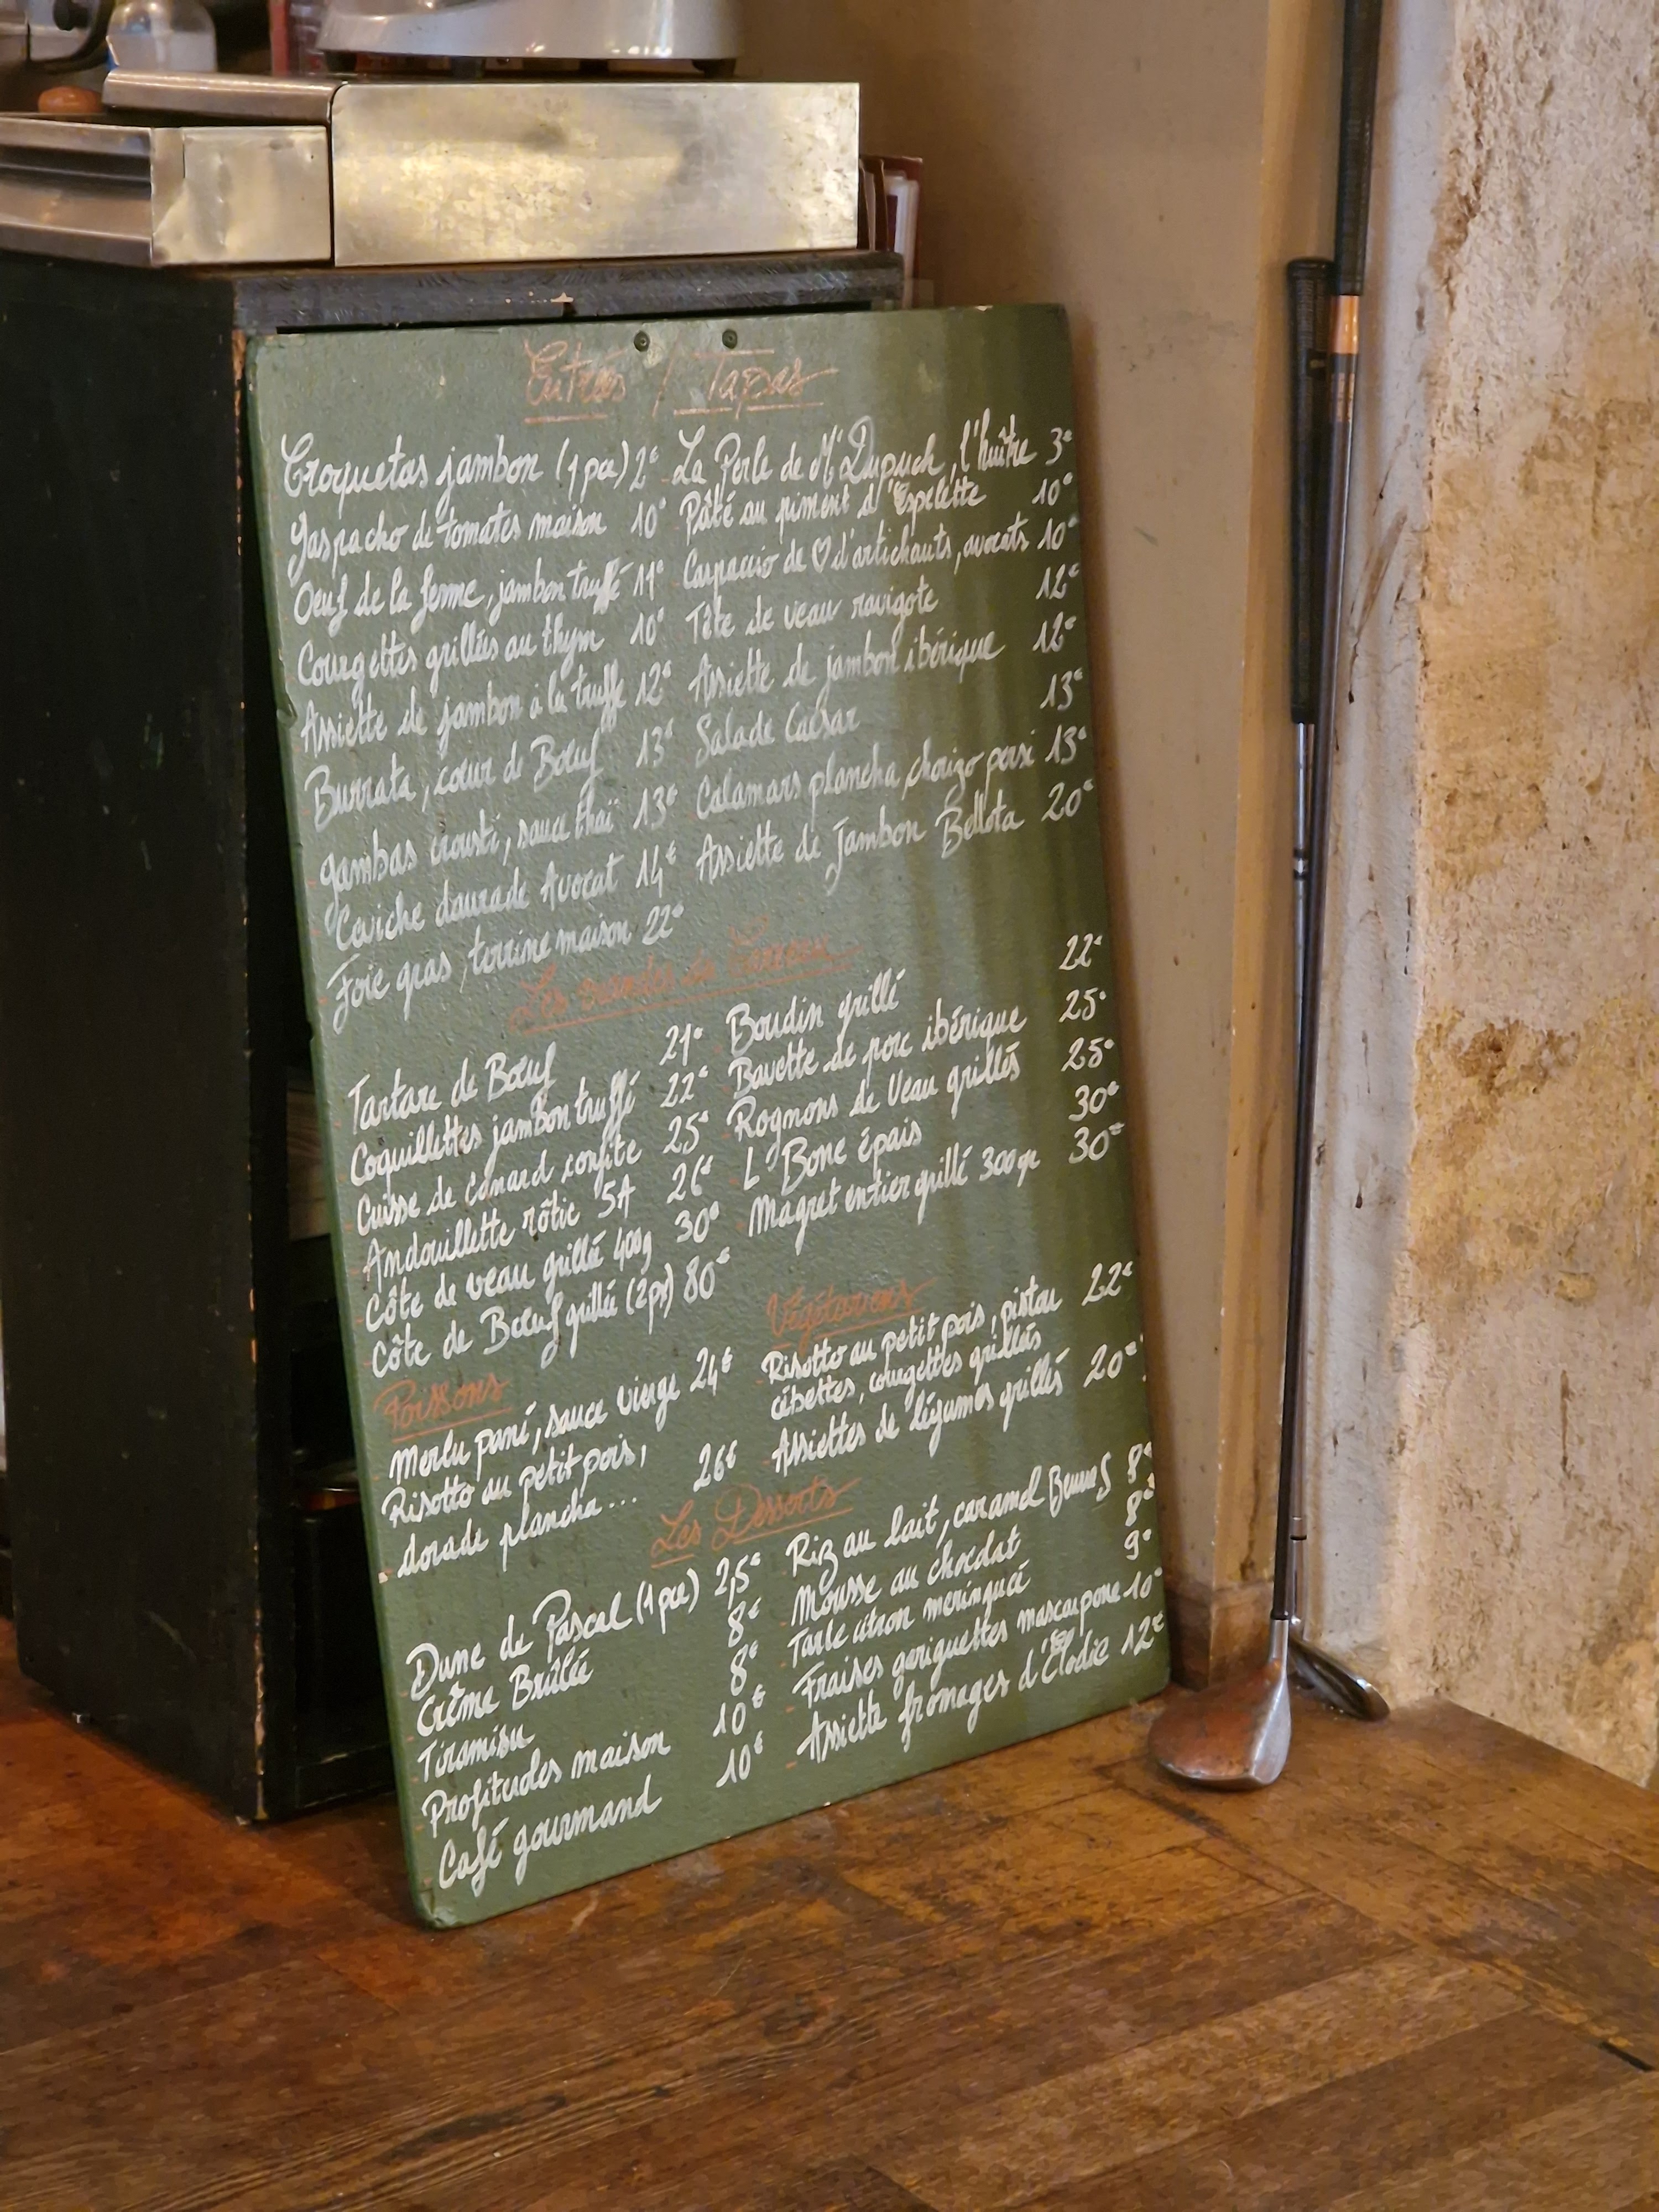 Entrées / Tapas
Croquetas jambon (1pce) 2€
Gaspacho de tomates maison 10€
Oeuf de la ferme, jambon truffé 11€
Courgettes grillées au thym 10€
Assiette de jambon à la truffe 12€
Burrata, coeur de Boeuf 13€
Gambas crousti, sauce thaï 13€
Ceviche daurade Avocat 14€
Foie gras, terrine maison 22€
La Perle de Mr Dupuch, l'huître 3€
Pâté au piment d'Espelette 10€
Carpaccio de ♡ d'artichauts, avocats 10€
Tête de veau ravigote 12€
Assiette de jambon ibérique 12€
Salade Caesar 13€
Calamars plancha, chorizo persi 13€
Assiette de Jambon Bellota 20€
Les viandes du
Tartare de Boeuf 21€
Coquillettes jambon truffé 22€
Cuisse de canard confite 25€
Andouillette rôtie 5A 26€
Côte de veau grillée 400g 30€
Côte de Boeuf grillée (2p) 80€
Boudin grillé 22€
Bavette de porc ibérique 25€
Rognons de Veau grillés 25€
L'Bone épais 30€
Magret entier grillé 300gr 30€
Poissons
Merlu pané, sauce vierge 24€
Risotto au petit pois,
dorade plancha... 26€
Végétariens
Risotto au petit pois, pistou 22€
cébettes, courgettes grillées
Assiettes de légumes grillés 20€
Les Desserts
Dune de Pascal (1pce) 2,5€
Crème Brûlée 8€
Tiramisu 8€
Profiteroles maison 10€
Café gourmand 10€
Riz au lait, caramel 8€
Mousse au chocolat 8€
Tarte citron meringuée 9€
Fraises gariguettes mascarpone 10€
Assiette fromages d'Élodie 12€